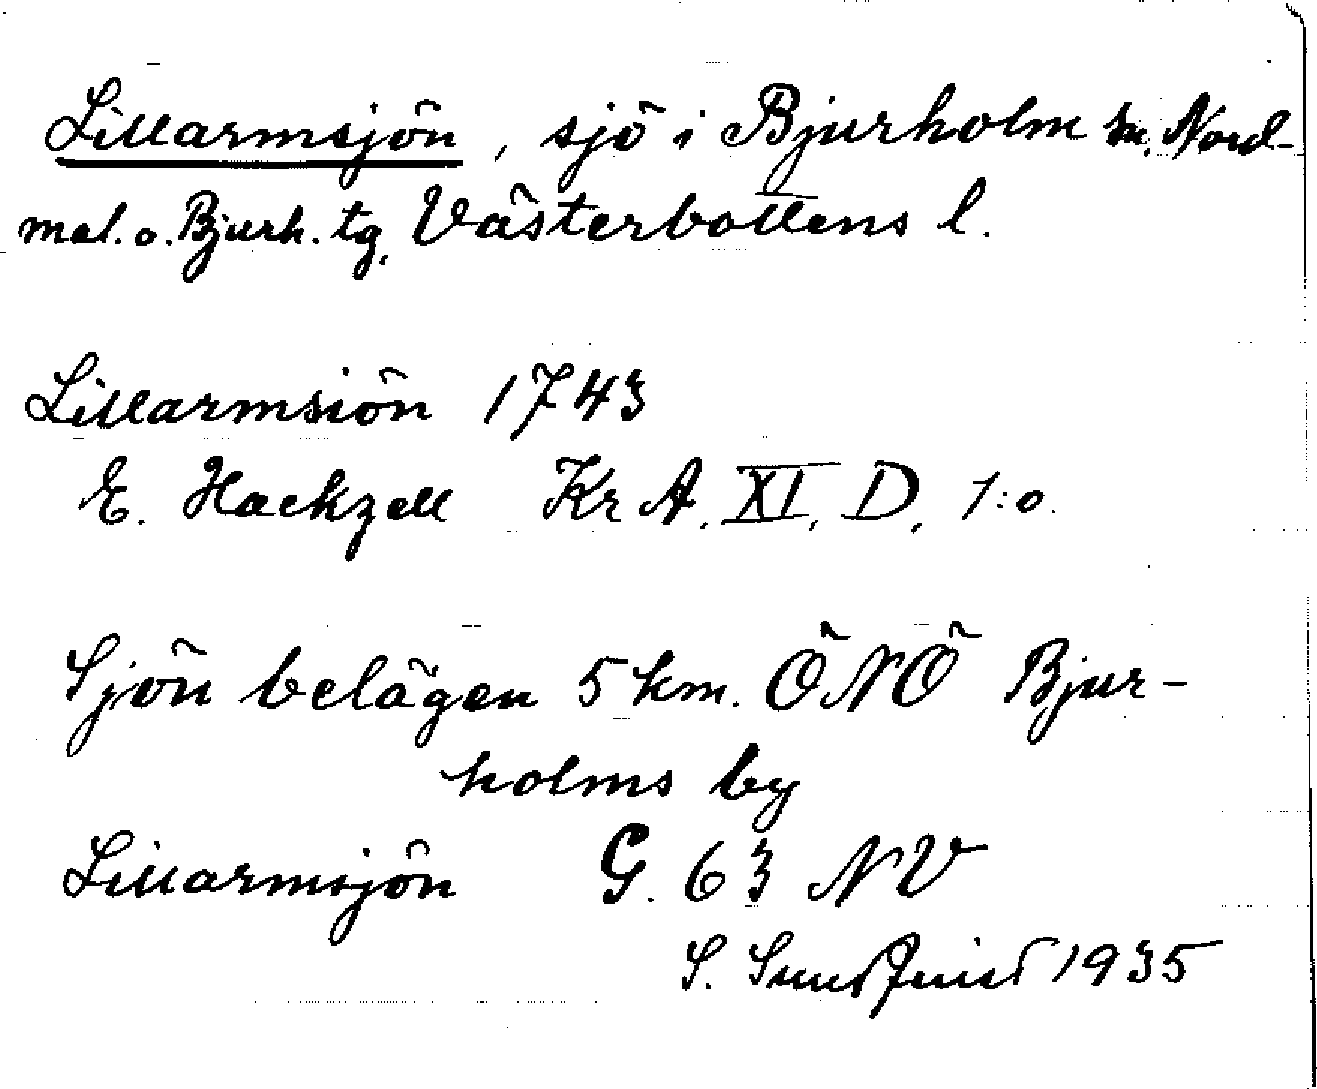 Lillarmsjön, sjö i Bjurholm sn, Nord-
mal. o. Bjurh. tg, Västerbottens l.
Lillarmsiön 1743
E. Hackzell Kr A. XI. D. 1:o.
Sjön belägen 5 km. ÖNÖ Bjur-
holms by
Lillarmsjön G. 63 NV
S. Sundquist 1935